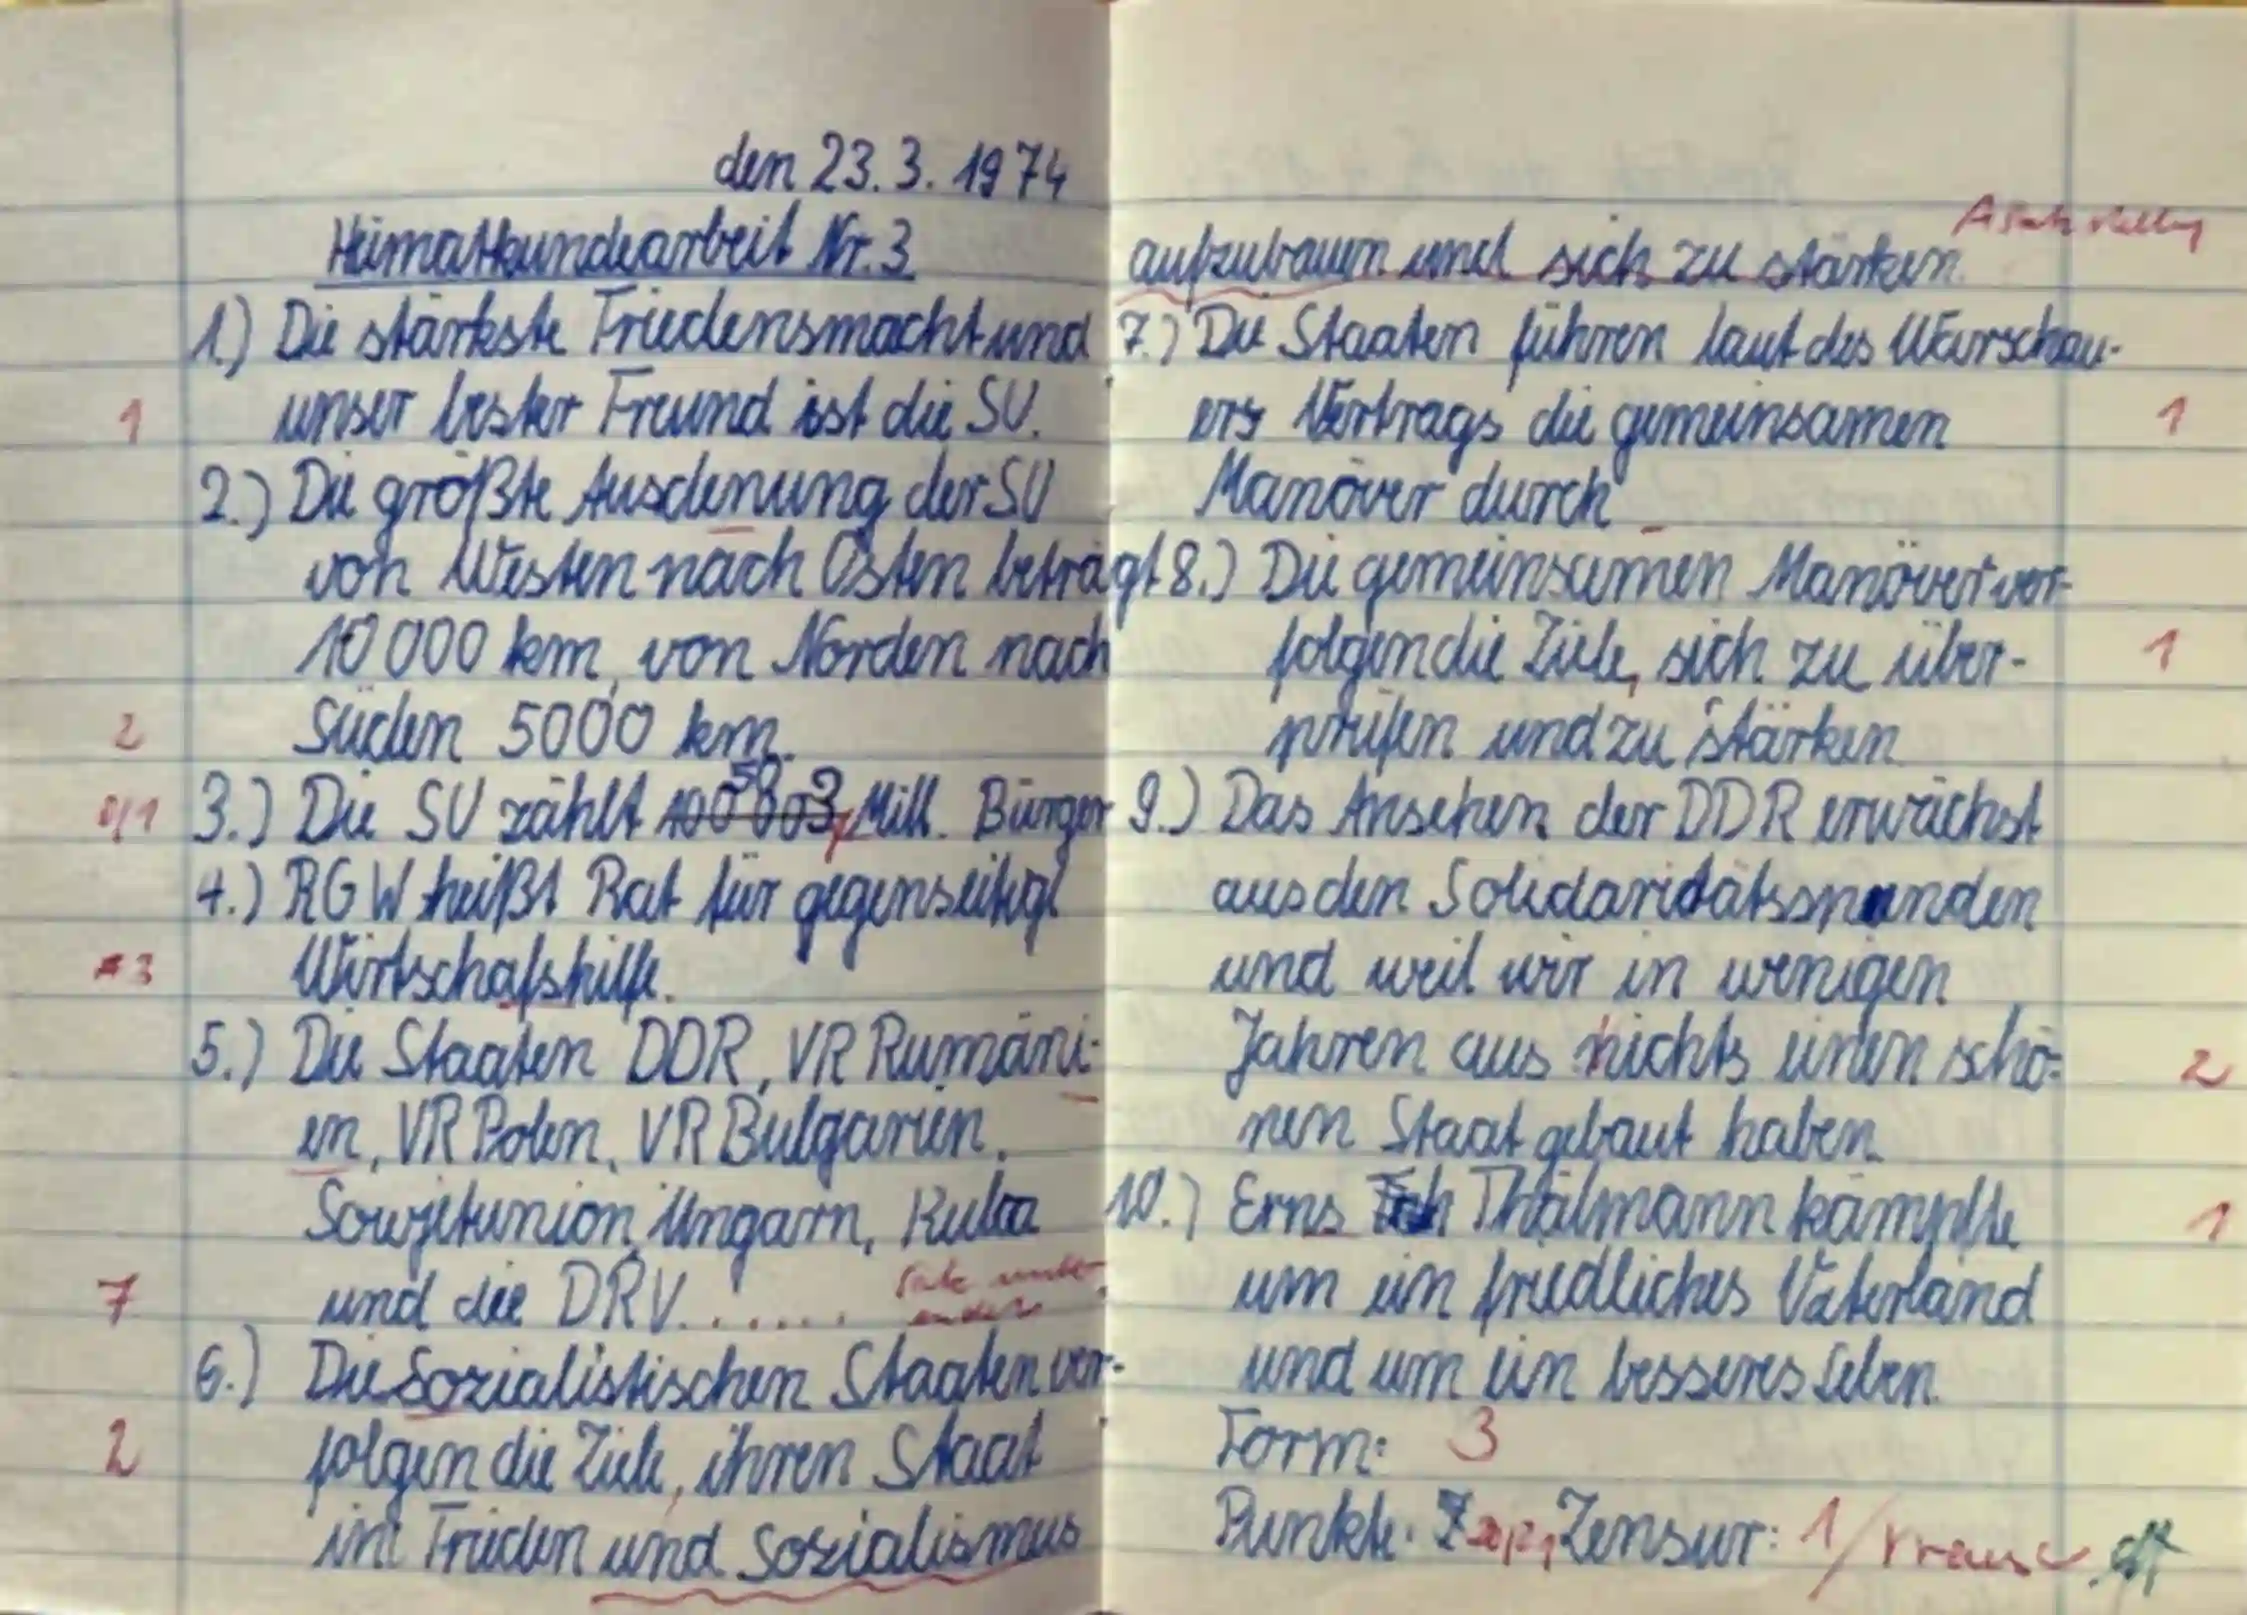 den 23.3.1974
Heimatkundearbeit Nr. 3
1.) Die stärkste Friedensmacht und
unser bester Freund ist die SU.
1
2.) Die größte Ausdenung der SU
von Westen nach Osten beträgt
10 000 km, von Norden nach
Süden 5000 km.
2
0/1 3.) Die SU zählt Mill. Bürger
4.) RGW heißt Rat für gegenseitige
Wirtschafshilfe.
3
5.) Die Staaten DDR, VR Rumäni-
en, VR Polen, VR Bulgarien,
Sowjetunion, Ungarn, Kuba
und die DRV.......
7
6.) Die Sozialistischen Staaten ver-
folgen die Ziele, ihren Staat
2
im Frieden und Sozialismus
aufzubauen und sich zu stärken.
7.) Die Staaten führen laut des Warschau-
ers Vertrags die gemeinsamen
1
Manöver durch
8.) Die gemeinsamen Manöver ver-
folgen die Ziele, sich zu über-
1
prüfen und zu stärken
9.) Das Ansehen der DDR erwächst
aus den Solidaritätsspenden
und weil wir in wenigen
Jahren aus nichts einen schö-
2
nen Staat gebaut haben.
10.) Erns Thälmann kämpfte
1
um ein friedliches Vaterland
und um ein besseres Leben.
Form: 3
Punkte: 20/21 Zensur: 1/ Krause